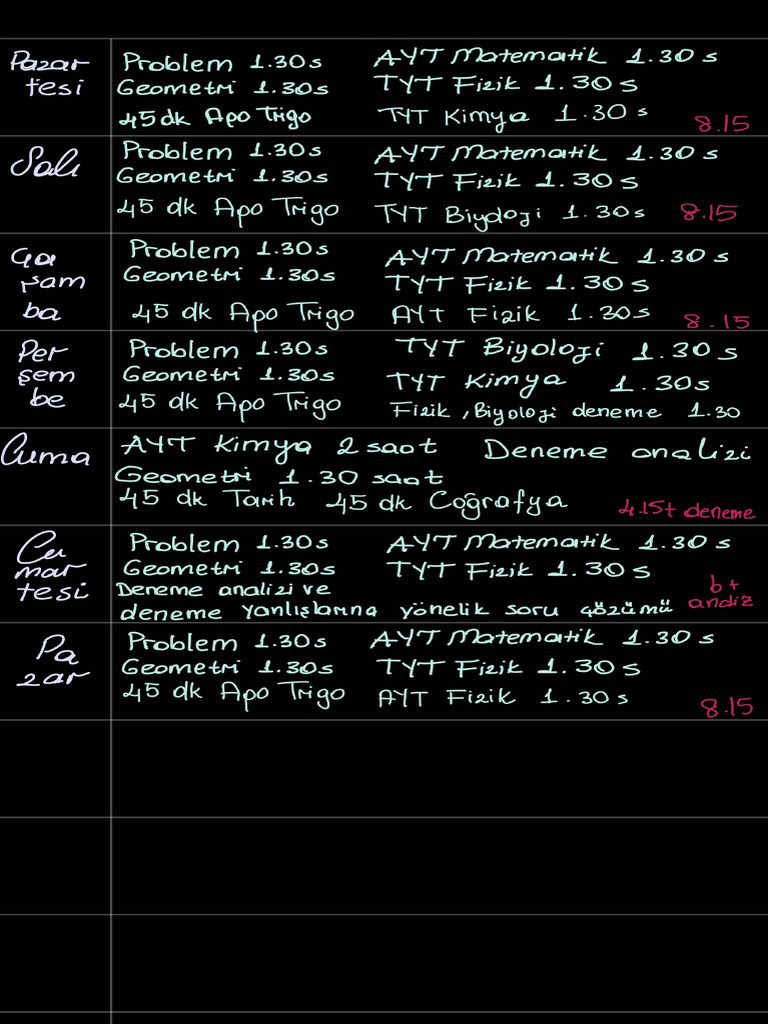 Pazar
tesi
Problem 1.30s
AYT Matematik 1.30 s
Geometri 1.30s
TYT Fizik 1.30 s
45dk Apo Trigo
TYT Kimya 1.30 s
8.15
Salı
Problem 1.30s
AYT Matematik 1.30 s
Geometri 1.30s
TYT Fizik 1.30 s
45 dk Apo Trigo
TYT Biyoloji 1.30s
8.15
Ça
rşam
ba
Problem 1.30s
AYT Matematik 1.30 s
Geometri 1.30s
TYT Fizik 1.30 s
45 dk Apo Trigo
AYT Fizik 1.30s
8.15
Per
şem
be
Problem 1.30s
TYT Biyoloji 1.30 s
Geometri 1.30s
TYT Kimya 1.30s
45 dk Apo Trigo
Fizik, Biyoloji deneme 1.30
Cuma
AYT Kimya 2 saat
Deneme analizi
Geometri 1.30 saat
45 dk Tarih 45 dk Coğrafya
4.15+ deneme
Cu
mar
tesi
Problem 1.30s
AYT Matematik 1.30 s
Geometri 1.30s
TYT Fizik 1.30 s
Deneme analizi ve
deneme yanlışlarına yönelik soru çözümü
6+
analiz
Pa
zar
Problem 1.30s
AYT Matematik 1.30 s
Geometri 1.30s
TYT Fizik 1.30 s
45 dk Apo Trigo
AYT Fizik 1.30 s
8.15